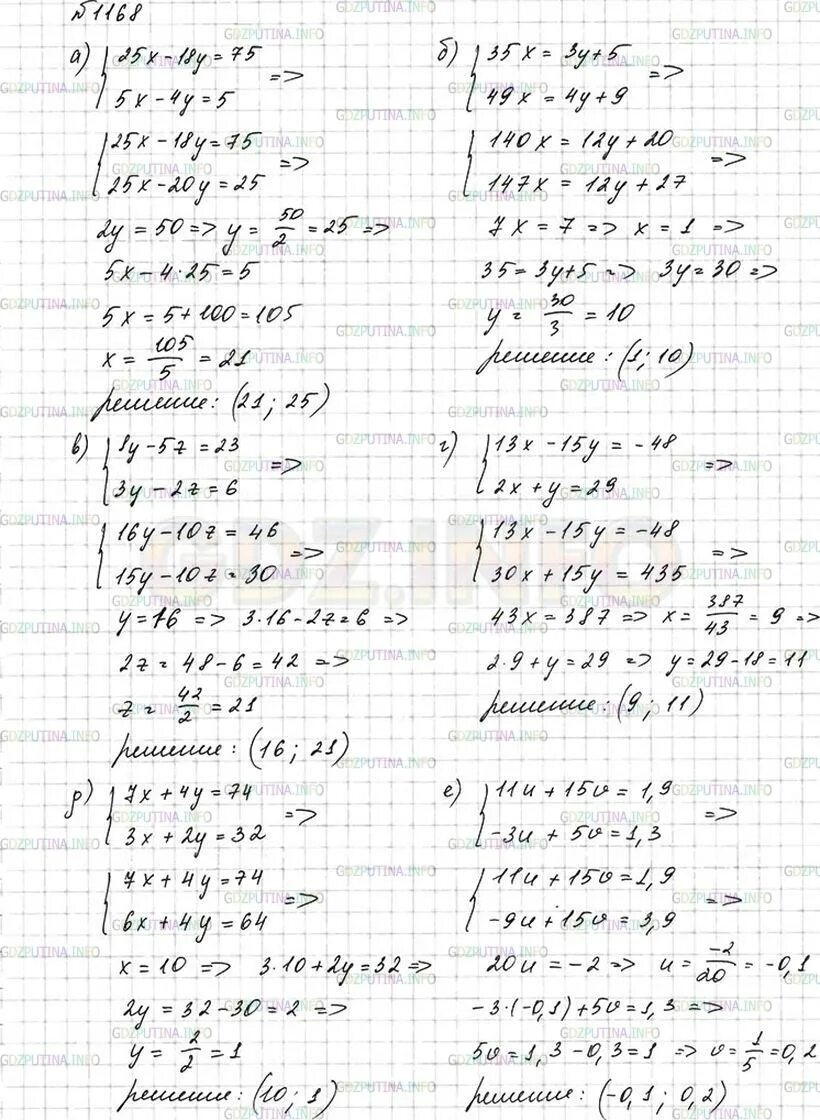 №1168
а) { 25x - 18y = 75
5x - 4y = 5 =>
{ 25x - 18y = 75
25x - 20y = 25 =>
2y = 50 => y = 50/2 = 25 =>
5x - 4·25 = 5
5x = 5 + 100 = 105
x = 105/5 = 21
решение: (21; 25)
б) { 35x = 3y + 5
49x = 4y + 9 =>
{ 140x = 12y + 20
147x = 12y + 27 =>
7x = 7 => x = 1 =>
35 = 3y + 5 => 3y = 30 =>
y = 30/3 = 10
решение: (1; 10)
в) { 8y - 5z = 23
3y - 2z = 6 =>
{ 16y - 10z = 46
15y - 10z = 30 =>
y = 16 => 3·16 - 2z = 6 =>
2z = 48 - 6 = 42 =>
z = 42/2 = 21
решение: (16; 21)
г) { 13x - 15y = -48
2x + y = 29 =>
{ 13x - 15y = -48
30x + 15y = 435 =>
43x = 387 => x = 387/43 = 9 =>
2·9 + y = 29 => y = 29 - 18 = 11
решение: (9; 11)
д) { 7x + 4y = 74
3x + 2y = 32 =>
{ 7x + 4y = 74
6x + 4y = 64 =>
x = 10 => 3·10 + 2y = 32 =>
2y = 32 - 30 = 2 =>
y = 2/2 = 1
решение: (10; 1)
е) { 11u + 15v = 1,9
-3u + 5v = 1,3 =>
{ 11u + 15v = 1,9
-9u + 15v = 3,9 =>
20u = -2 => u = -2/20 = -0,1
-3·(-0,1) + 5v = 1,3 =>
5v = 1,3 - 0,3 = 1 => v = 1/5 = 0,2
решение: (-0,1; 0,2)
GDZ.INFO
GDZPUTINA.INFO